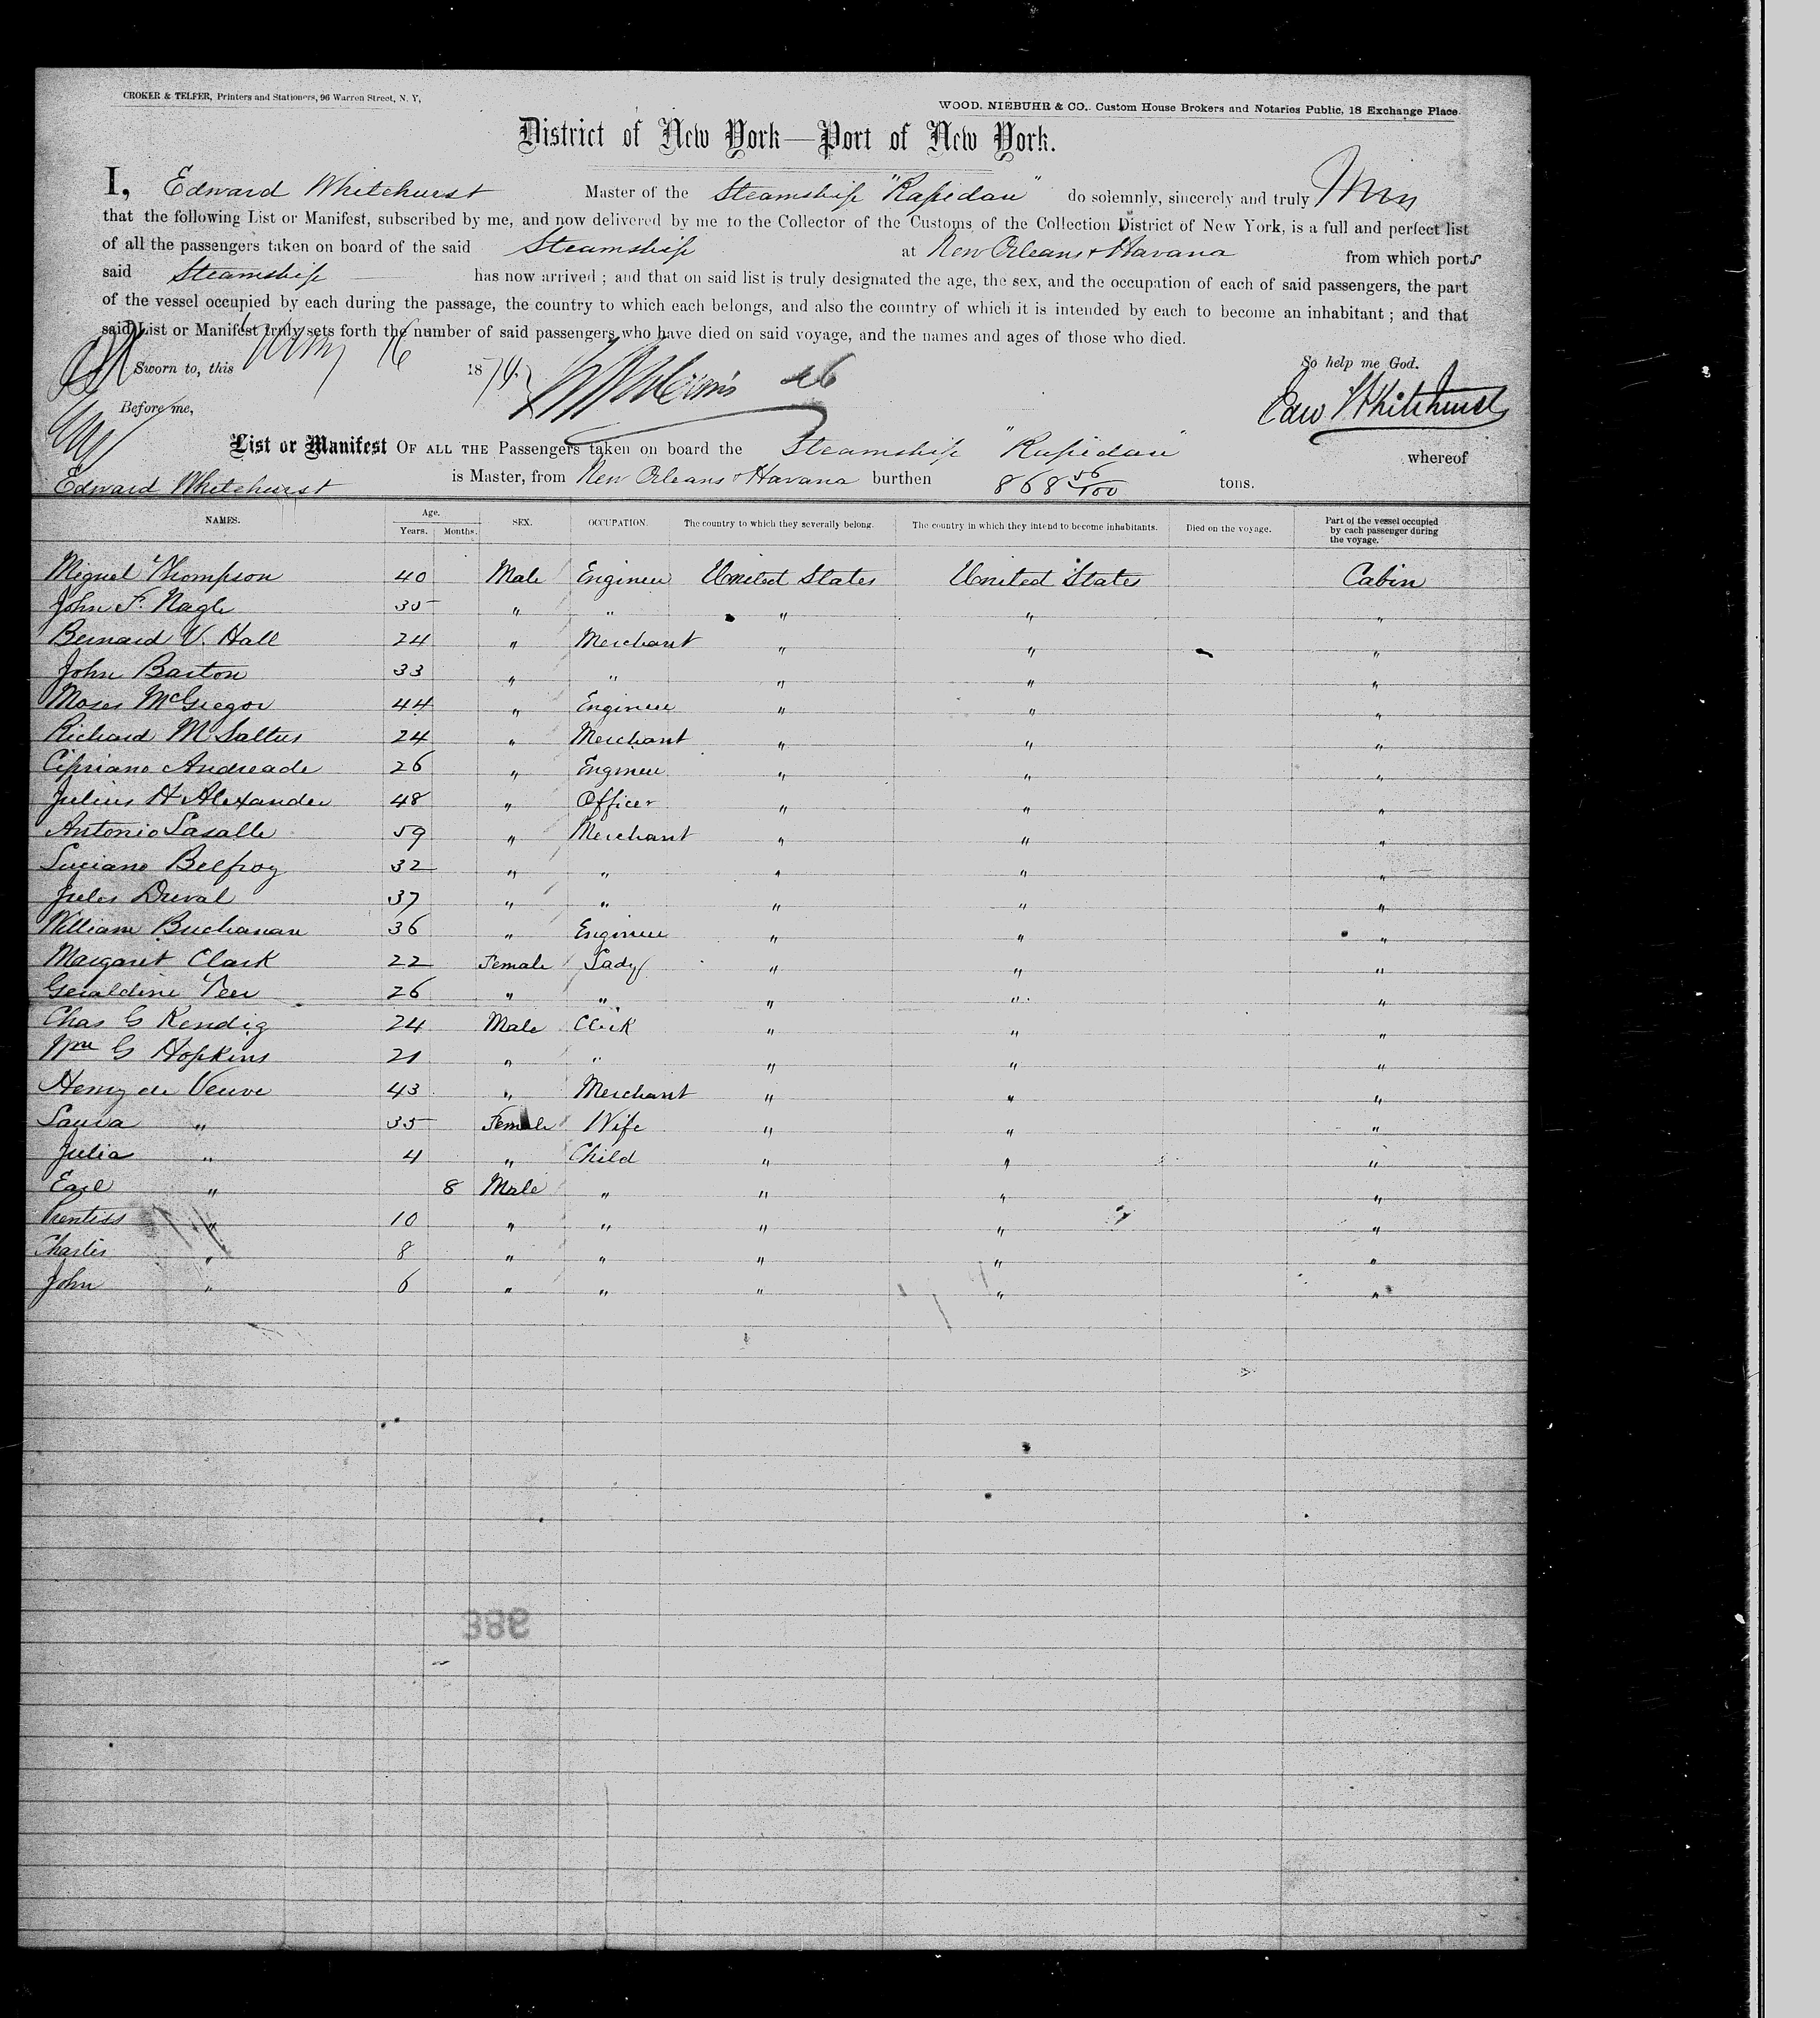 CROKER & TELFER, Printers and Stationers, 96 Warren Street, N. Y,
WOOD, NIEBUHR & CO., Custom House Brokers and Notaries Public, 18 Exchange Place.
District of New York—Port of New York.
I, Edward Whitehurst Master of the Steamship "Rapidan" do solemnly, sincerely and truly
that the following List or Manifest, subscribed by me, and now delivered by me to the Collector of the Customs of the Collection District of New York, is a full and perfect list
of all the passengers taken on board of the said Steamship at New Orleans & Havana from which ports
said Steamship has now arrived ; and that on said list is truly designated the age, the sex, and the occupation of each of said passengers, the part
of the vessel occupied by each during the passage, the country to which each belongs, and also the country of which it is intended by each to become an inhabitant ; and that
said List or Manifest truly sets forth the number of said passengers who have died on said voyage, and the names and ages of those who died.
Sworn to, this 16 1874. So help me God.
Before me, Edw Whitehurst
List or Manifest OF ALL THE Passengers taken on board the Steamship "Rapidan" whereof
Edward Whitehurst is Master, from New Orleans & Havana burthen 868 56/100 tons.
NAMES. Age. Years. Months. SEX. OCCUPATION. The country to which they severally belong. The country in which they intend to become inhabitants. Died on the voyage. Part of the vessel occupied by each passenger during the voyage.
Miguel Thompson 40 Male Engineer United States United States Cabin
John F. Nagle 35 " " " " "
Bernard V. Hall 24 " Merchant " " "
John Barton 33 " " " " "
Moses McGregor 44 " Engineer " " "
Richard M Saltus 24 " Merchant " " "
Cipriano Andreade 26 " Engineer " " "
Julius H Alexander 48 " Officer " " "
Antonio Lasalle 59 " Merchant " " "
Luciano Belfroy 32 " " " " "
Jules Duval 37 " " " " "
William Buchanan 36 " Engineer " " "
Margaret Clark 22 Female Lady " " "
Geraldine Peer 26 " " " " "
Chas G Kendig 24 Male Clerk " " "
Wm G Hopkins 21 " " " " "
Henry de Veuve 43 " Merchant " " "
Laura " 35 Female Wife " " "
Julia " 4 " Child " " "
Earl " 8 Male " " " "
Prentiss " 10 " " " " "
Charles " 8 " " " " "
John " 6 " " " " "